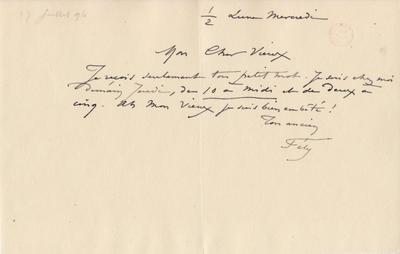 17 Juillet 96
1/2 Lune Mercredi
Mon Cher Vieux
Je reçois seulement ton petit mot. Je suis chez moi
demain Jeudi, de 10 à midi et de deux à
cinq. Ah mon Vieux je suis bien embêté !
Ton ancien
Fély